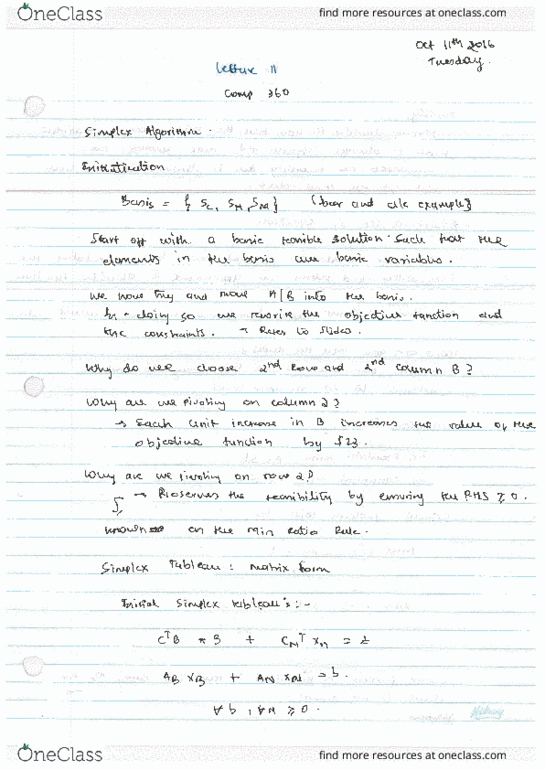 OneClass
find more resources at oneclass.com
Oct 11th 2016
Tuesday.
Lecture 11
Comp 360
Simplex Algorithm.
Initialization
Basis = { Sc, SH, SM } (beer and ale example)
Start off with a basic feasible solution such that the
elements in the basis are basic variables.
We now try and move A/B into the basis.
In doing so we rewrite the objective function and
the constraints. → Refer to slides.
Why do we choose 2nd row and 2nd column B?
Why are we pivoting on column 2?
→ Each unit increase in B increases the value of the
objective function by $23.
Why are we pivoting on row 2?
→ Preserves the feasibility by ensuring the RHS ≥ 0.
known as the min Ratio Rule.
Simplex Tableau: matrix form
Initial Simplex tableau's :-
CTB xB + CNT xN = Z
AB xB + AN xN = b.
≥ 0.
OneClass
find more resources at oneclass.com